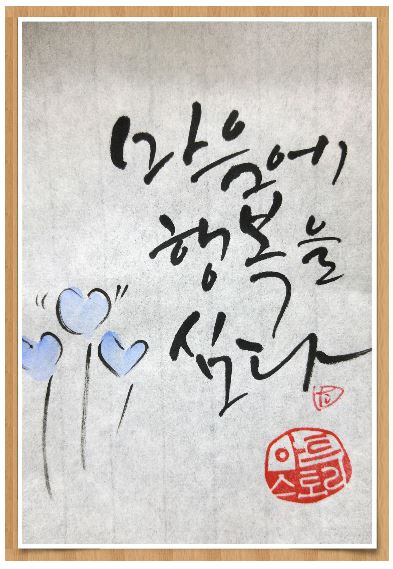 마음에
행복을
심다
아트
스토리